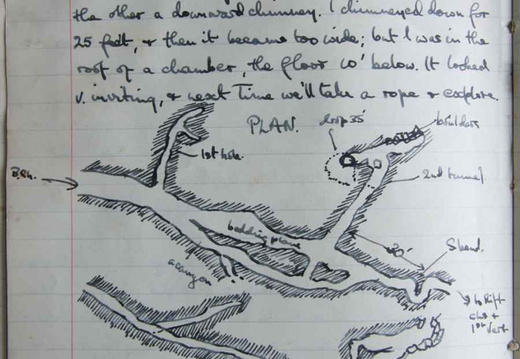 the other a downward chimney. I chimneyed down for
25 feet, & then it became too wide; but I was in the
roof of a chamber, the floor 10' below. It looked
v. inviting, & next time we'll take a rope & explore.
PLAN.
drop 35'
boulders
1st hole.
B.Ch.
2nd tunnel
bedding plane
S bend.
a canyon
to Rift
& 1st Vert